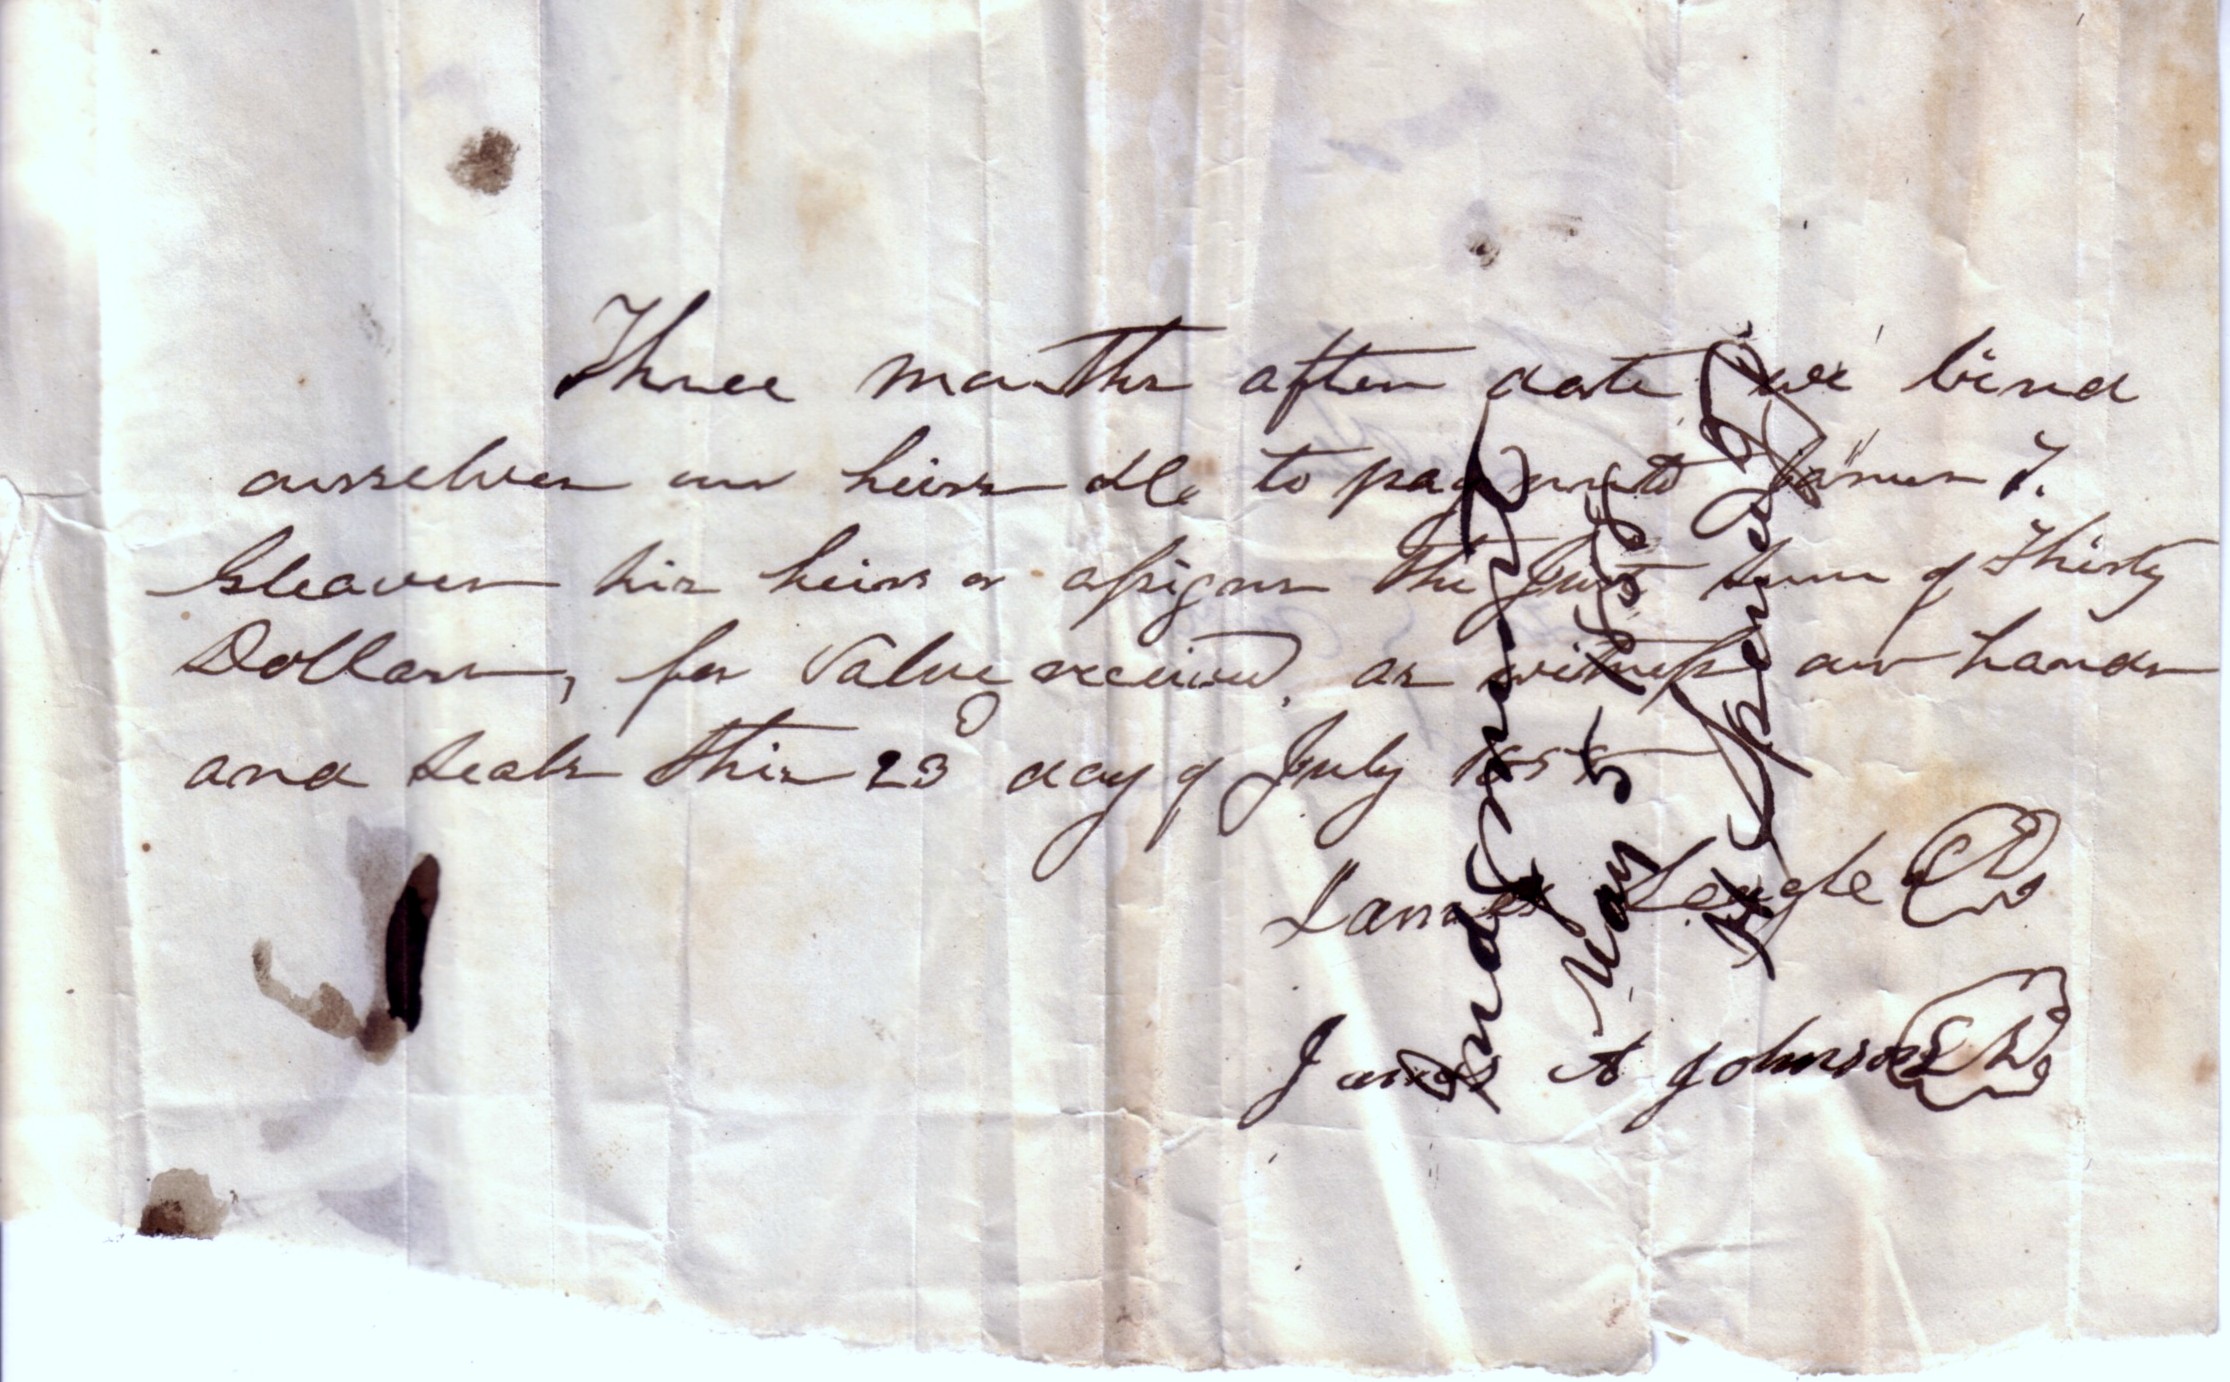 Three months after date we bind
ourselves our heirs &c to pay unto James T.
Gleaves his heirs or assigns the Just sum of Thirty
Dollars, for value received, as witness our hands
and seals this 23 day of July 185
James
James A Johnson
Judgment
May 5
H Spence